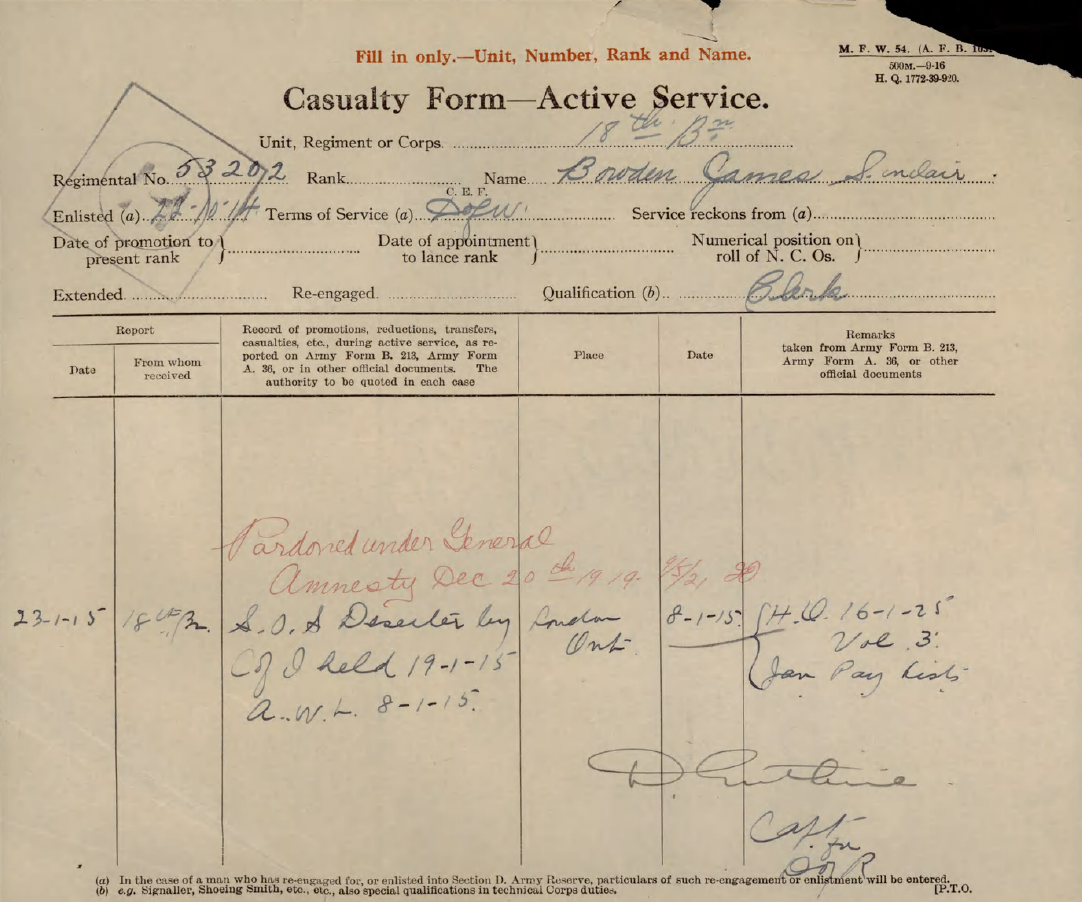 M. F. W. 54. (A. F. B. 103
500M.—9-16
H. Q. 1772-39-920.
Fill in only.—Unit, Number, Rank and Name.
Casualty Form—Active Service.
Unit, Regiment or Corps. 18th Bn.
Regimental No. 53202 Rank Name Bowden James Sinclair
C. E. F.
Enlisted (a) 22-10-14 Terms of Service (a) D of W. Service reckons from (a)
Date of promotion to present rank } Date of appointment to lance rank } Numerical position on roll of N. C. Os. }
Extended. Re-engaged. Qualification (b) Clerk
Report
Date
From whom received
Record of promotions, reductions, transfers,
casualties, etc., during active service, as re-
ported on Army Form B. 213, Army Form
A. 36, or in other official documents. The
authority to be quoted in each case
Place
Date
Remarks
taken from Army Form B. 213,
Army Form A. 36, or other
official documents
Pardoned under General
Amnesty Dec 20th 1919. 20
23-1-15 18th Bn. S.O.S Deserter by London 8-1-15. H.Q. 16-1-25
C of I held 19-1-15 Ont. Vol 3.
Jan Pay Lists
A.W.L. 8-1-15.
D. Guthrie
Capt.
for
D of R
(a) In the case of a man who has re-engaged for, or enlisted into Section D. Army Reserve, particulars of such re-engagement or enlistment will be entered.
(b) e.g. Signaller, Shoeing Smith, etc., etc., also special qualifications in technical Corps duties. [P.T.O.